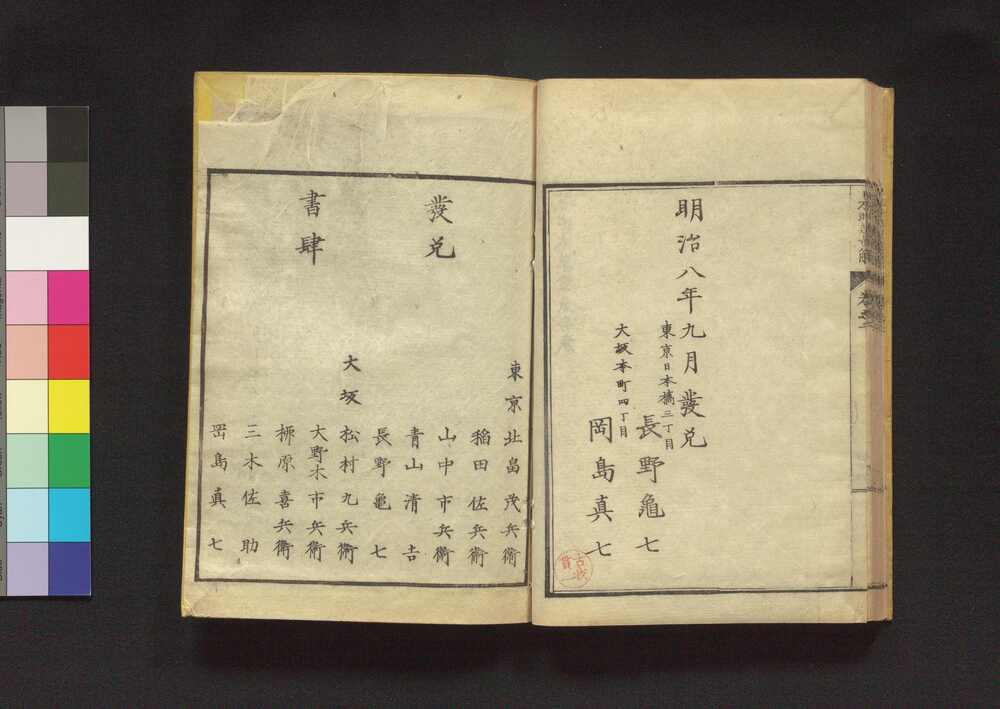 明治八年九月發兌
東京日本橋三丁目
長野亀七
大坂本町四丁目
岡島真七
發兌
書肆
東京
北畠茂兵衛
稲田佐兵衛
山中市兵衛
青山清吉
長野亀七
大坂
松村九兵衛
大野木市兵衛
柳原喜兵衛
三木佐助
岡島真七